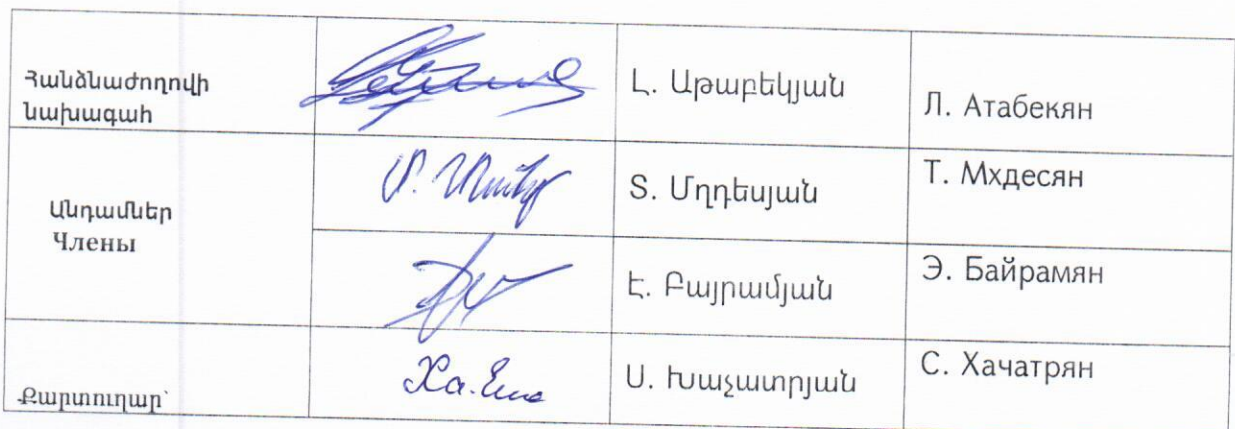 Հանձնաժողովի
նախագահ
Լ. Աթաբեկյան
Л. Атабекян
Անդամներ
Члены
Տ. Մղդեսյան
Т. Мхдесян
Է. Բայրամյան
Э. Байрамян
Քարտուղար՝
Ս. Խաչատրյան
С. Хачатрян